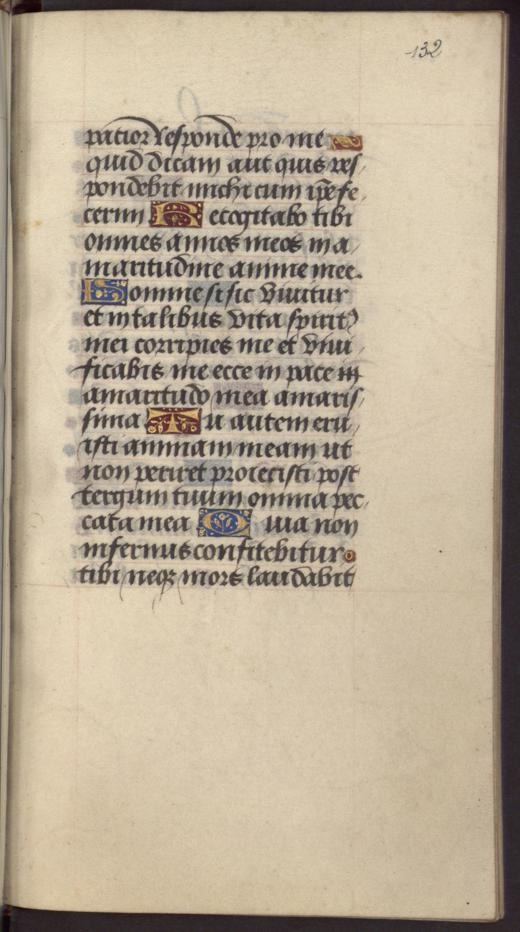 132
patior responde pro me
quid dicam aut quis res
pondebit michi cum ip̄e fe
cerim Recogitabo tibi
omnes annos meos in a
maritudine anime mee.
Domine si sic viuitur
et in talibus vita spirit
mei corripies me et viui
ficabis me ecce in pace in
amaritudo mea amaris
sima Tu autem eru
isti animam meam ut
non periret proiecisti post
tergum tuum omnia pec
cata mea Quia non
infernus confitebitur
tibi neqꝫ mors laudabit